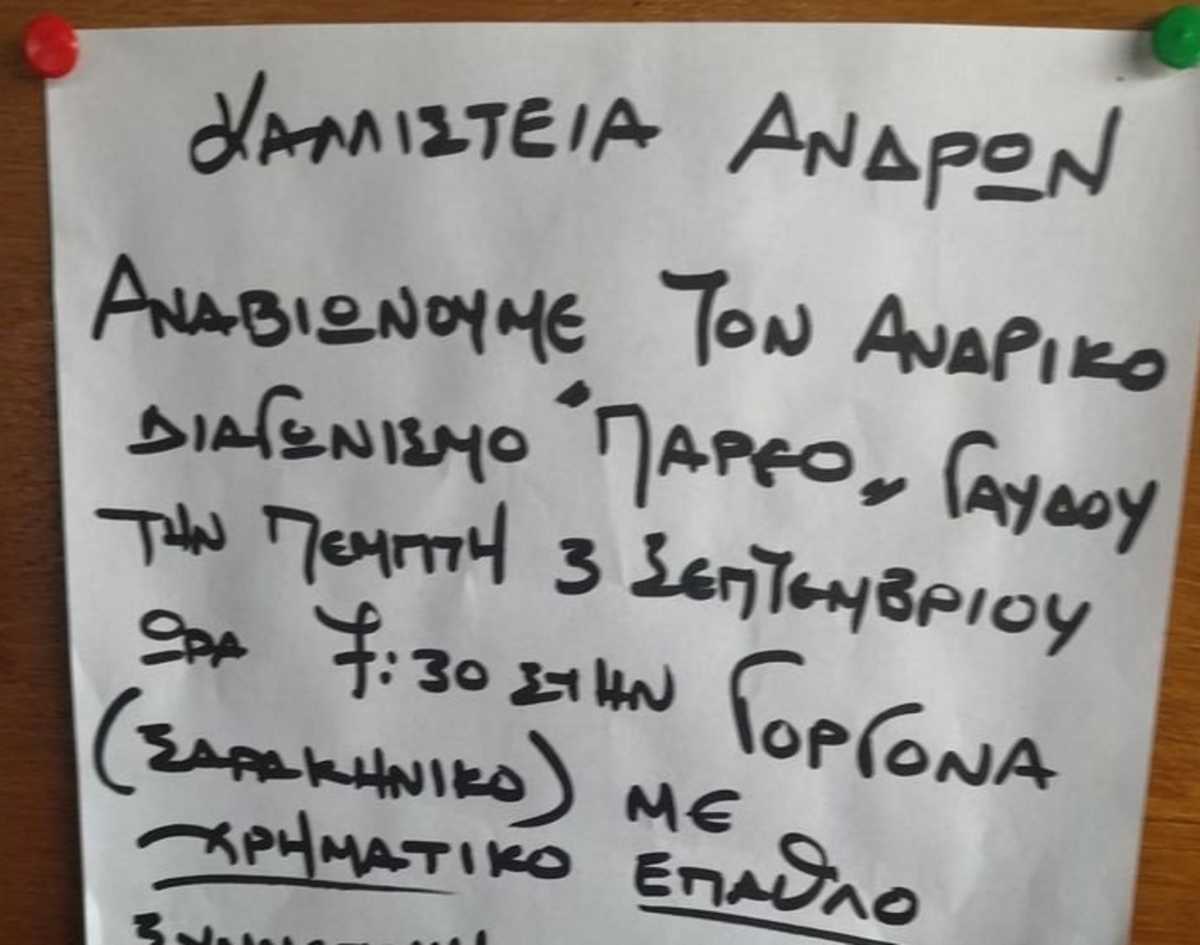 ΚΑΛΛΙΣΤΕΙΑ ΑΝΔΡΩΝ
ΑΝΑΒΙΩΝΟΥΜΕ ΤΟΝ ΑΝΔΡΙΚΟ
ΔΙΑΓΩΝΙΣΜΟ "ΠΑΡΕΟ„ ΓΑΥΔΟΥ
ΤΗΝ ΠΕΜΠΤΗ 3 ΣΕΠΤΕΜΒΡΙΟΥ
ΩΡΑ 7:30 ΣΤΗΝ ΓΟΡΓΟΝΑ
(ΣΑΡΑΚΗΝΙΚΟ) ΜΕ
ΧΡΗΜΑΤΙΚΟ ΕΠΑΘΛΟ